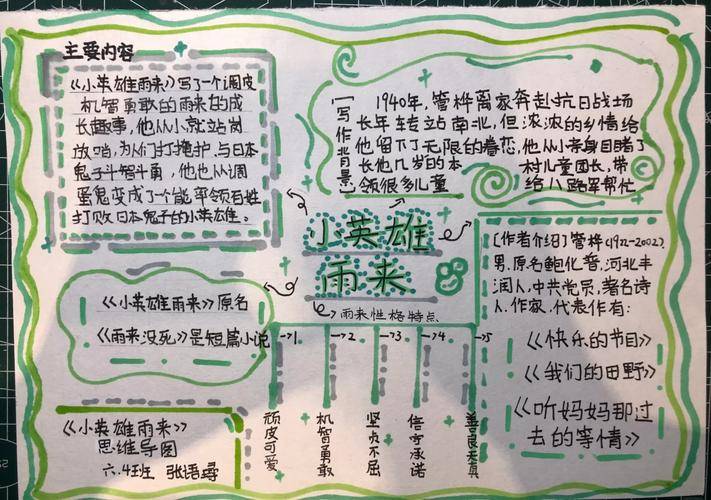 主要内容
《小英雄雨来》写了一个调皮
机智勇敢的雨来的成
长趣事,他从小就站岗
放哨,为人们打掩护,与日本
鬼子斗智斗勇,他也从调
蛋鬼变成了一个能率领百姓
打败日本鬼子的小英雄。
[写作背景]
1940年,管桦离家奔赴抗日战场
长年转站南北,但浓浓的乡情给
他留下了无限的眷恋,他从小亲身目睹了
长他几岁的本村儿童团长,带
领很多儿童给八路军帮忙
小英雄
雨来
[作者介绍]管桦(1922-2002)
男,原名鲍化普,河北丰
润人,中共党员,著名诗
人,作家,代表作有:
《快乐的节日》
《我们的田野》
《听妈妈那过
去的事情》
《小英雄雨来》原名
《雨来没死》是短篇小说
雨来性格特点
1 2 3 4 5
顽皮可爱
机智勇敢
坚贞不屈
信守承诺
善良天真
《小英雄雨来》
思维导图
六.4班 张语